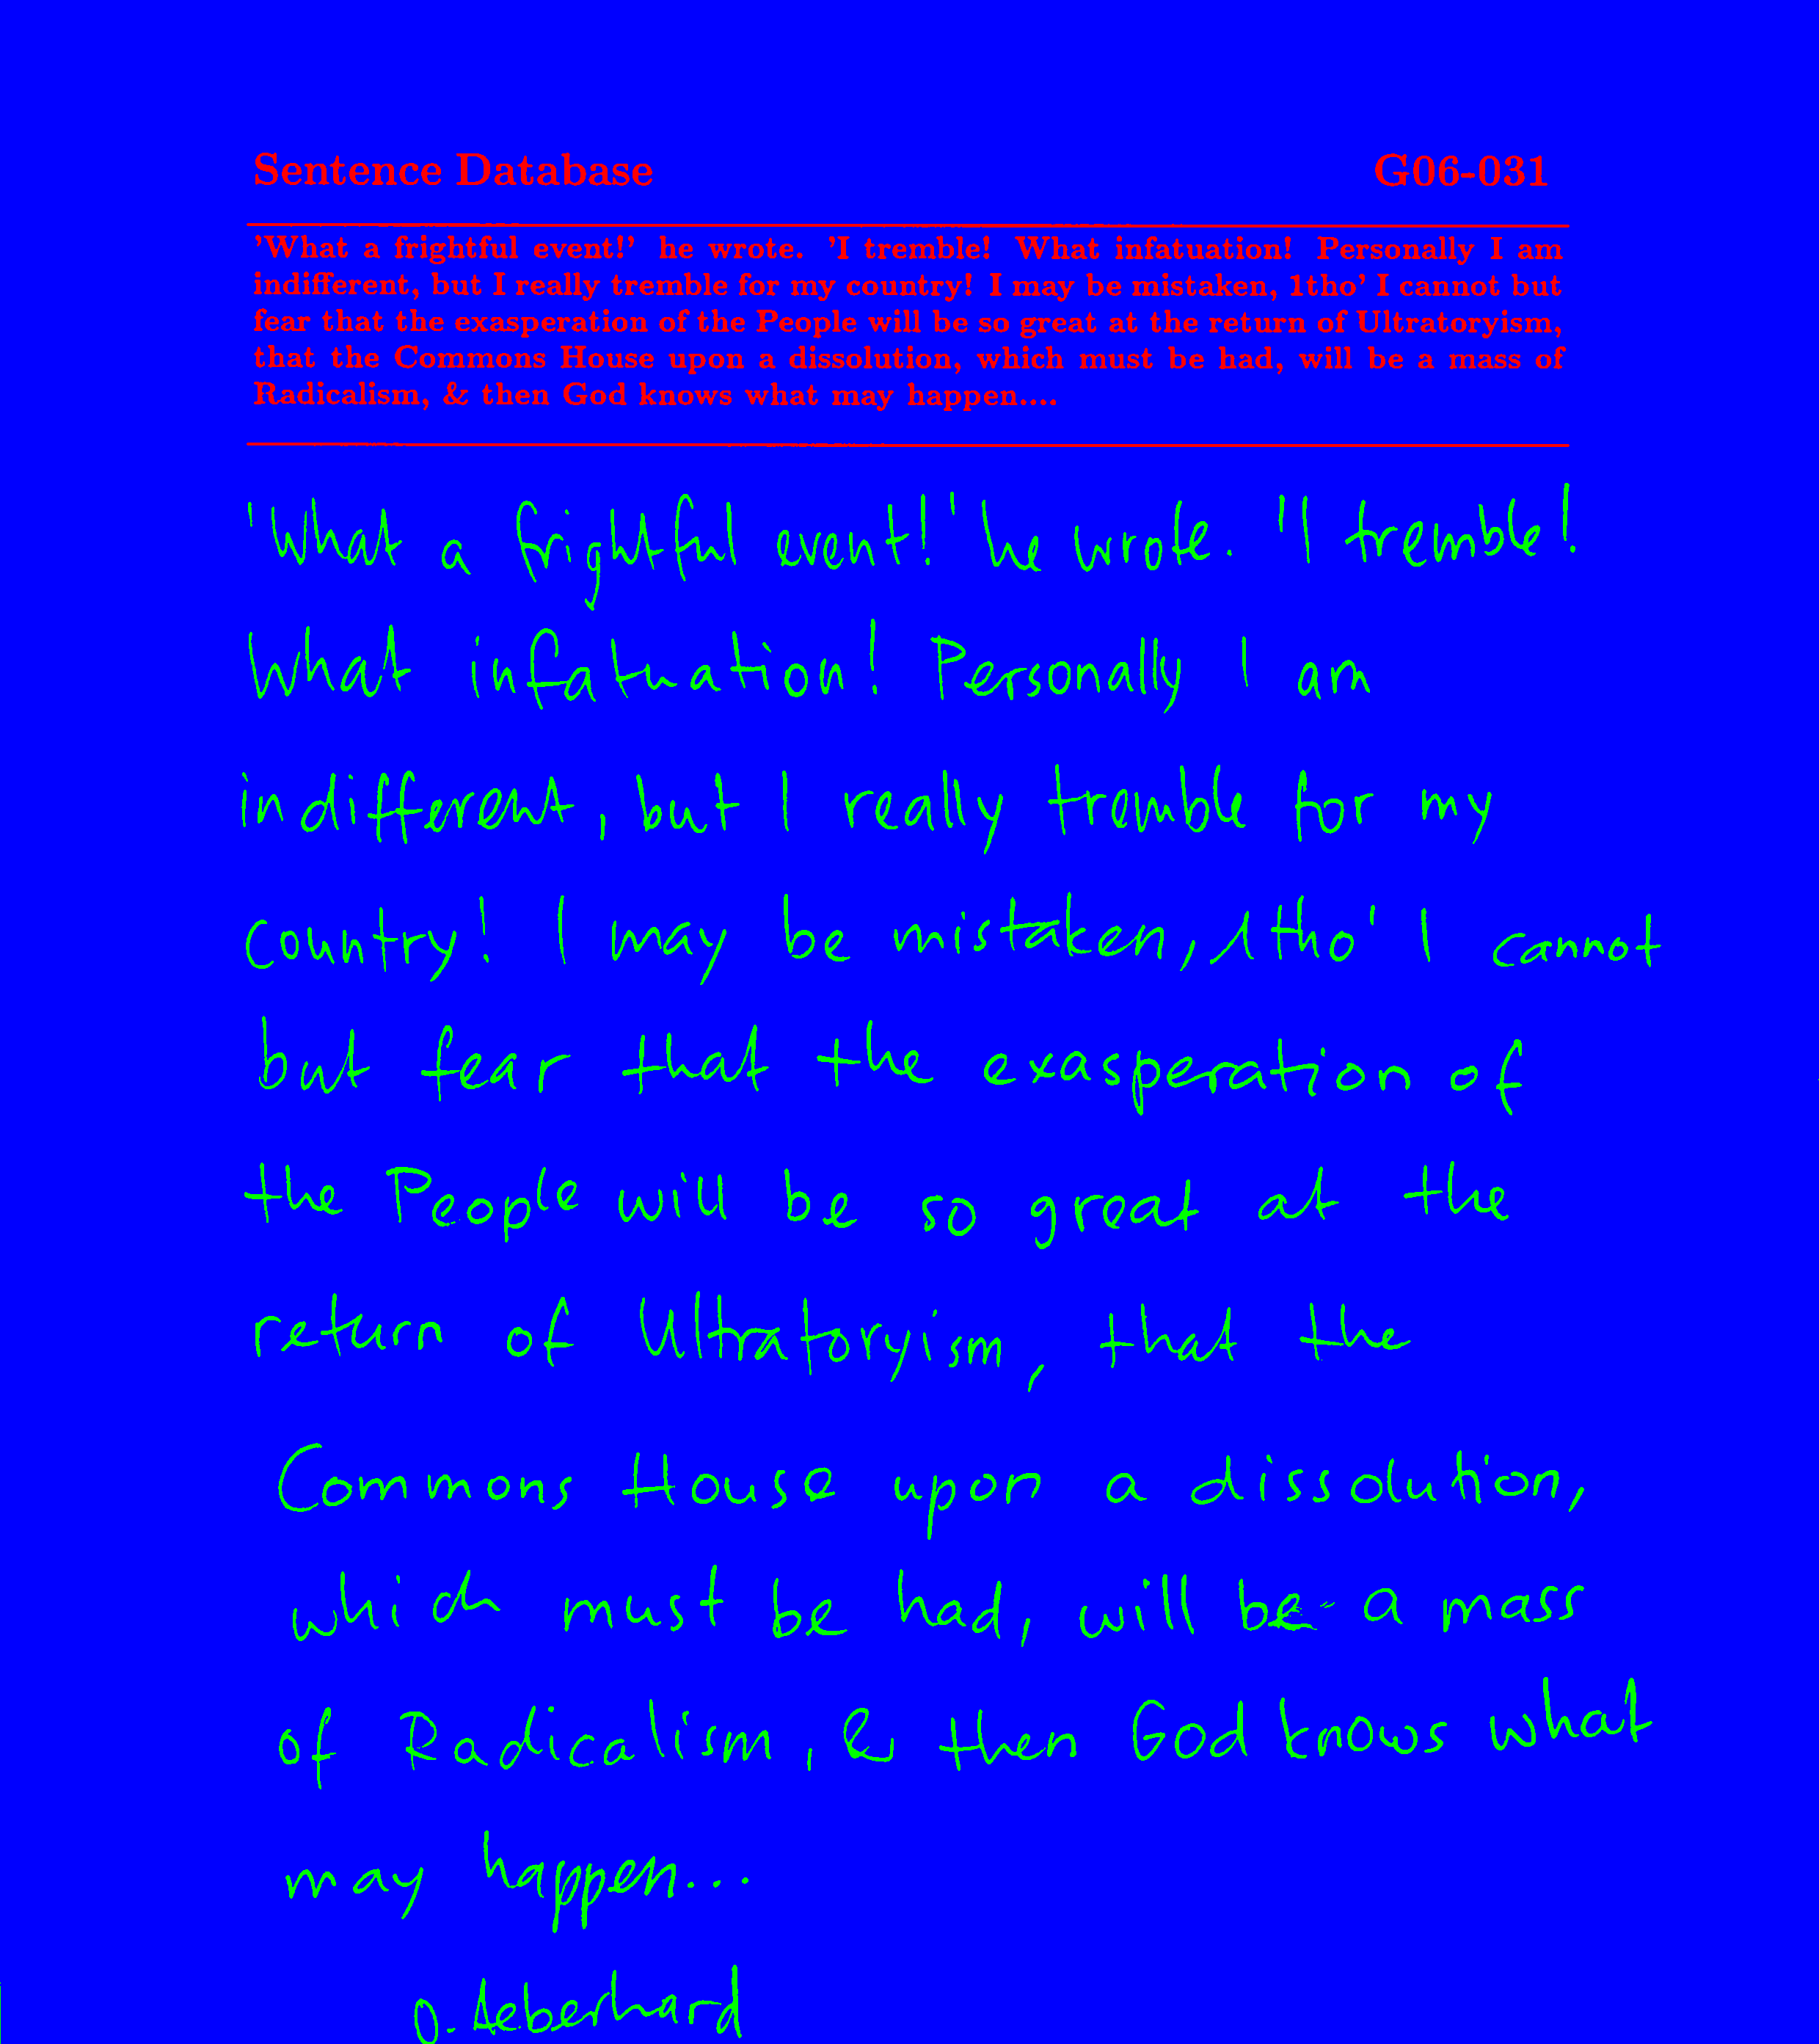 Sentence Database G06-031
'What a frightful event!' he wrote. 'I tremble! What infatuation! Personally I am
indifferent, but I really tremble for my country! I may be mistaken, 1tho' I cannot but
fear that the exasperation of the People will be so great at the return of Ultratoryism,
that the Commons House upon a dissolution, which must be had, will be a mass of
Radicalism, & then God knows what may happen....
'What a frightful event!' he wrote. 'I tremble!
What infatuation! Personally I am
indifferent, but I really tremble for my
country! I may be mistaken, 1tho' I cannot
but fear that the exasperation of
the People will be so great at the
return of Ultratoryism, that the
Commons House upon a dissolution,
which must be had, will be a mass
of Radicalism, & then God knows what
may happen...
O. Aeberhard